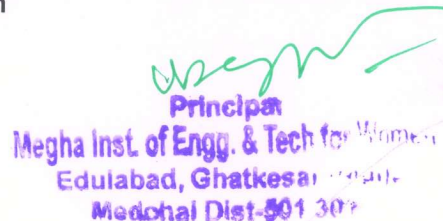 Principal
Megha Inst. of Engg. & Tech for Women
Edulabad, Ghatkesar
Medchal Dist-501 301